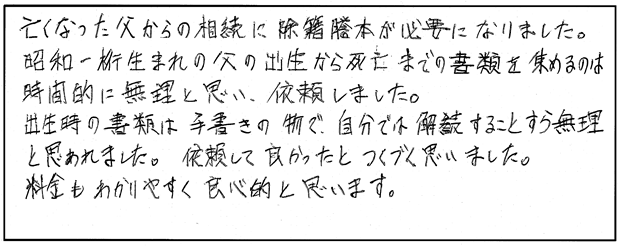 亡くなった父からの相続に除籍謄本が必要になりました。
昭和一桁生まれの父の出生から死亡までの書類を集めるのは
時間的に無理と思い、依頼しました。
出生時の書類は手書きの物で、自分では解読することすら無理
と思われました。依頼して良かったとつくづく思いました。
料金もわかりやすく良心的と思います。